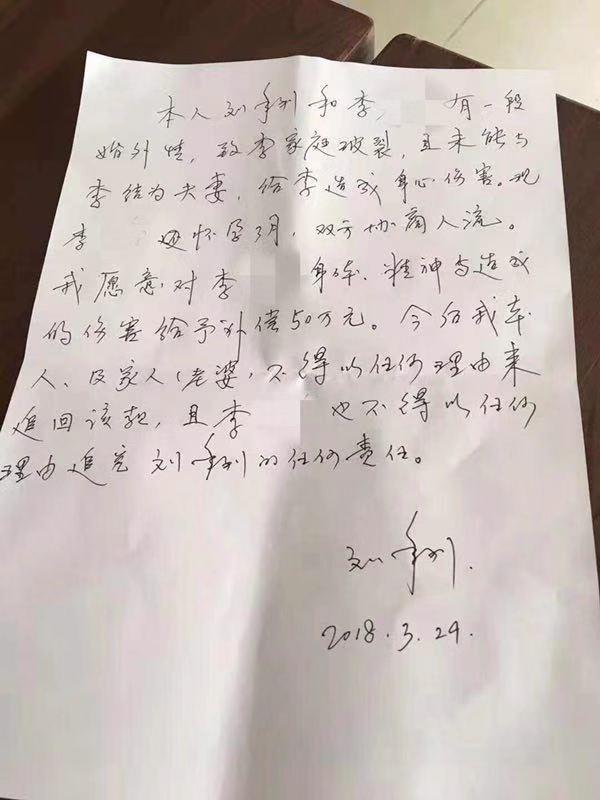 本人刘 和李 有一段
婚外性，致李家庭破裂，且未能与
李结为夫妻，给李造成身心伤害。现
李 怀孕3月，双方协商人流。
我愿意对李 身体、精神与造成
的伤害给予补偿50万元。今后我本
人、及家人(老婆)不得以任何理由来
追回该款，且李 也不得以任何
理由追究刘 的任何责任。
刘
2018.3.24.